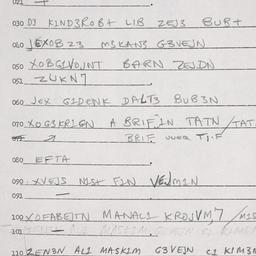 021
030 DJ K1ND3ROB+ LIB ZEJ3 BUB+
040 JEXOB Z3 M3KAN3 G3VEJN
050 XOBG1VOJNT BARN ZEJDN
052 ZUKN7
060 JEX G1DENK DALT3 BUB3N
070 XOG3KRIGN A BRIF IN TATN /TAT.
BRIF
080 EFTA
090 XVEJS N1ST F1N VEJM1N
091 —
100 XOFABEJTN MANAL1 KROJVM,7 /M1S
101 —
110 ZEN3N AL1 MASK1M G3VEJN C1 K1M3N